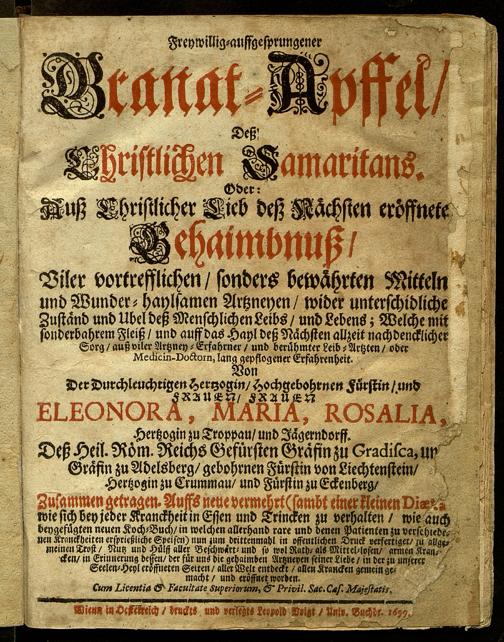 Freywillig-auffgesprungener
Granat-Apffel/
Deß
Christlichen Samaritans.
Oder:
Auß Christlicher Lieb deß Nächsten eröffnete
Gehaimbnuß/
Viler vortrefflichen/ sonders bewährten Mitteln
und Wunder-haylsamen Artzneyen/ wider unterschidliche
Zuständ und Ubel deß Menschlichen Leibs/ und Lebens; Welche mit
sonderbahrem Fleiß/ und auff das Hayl deß Nächsten allzeit nachdencklicher
Sorg/ auß viler Artzney-Erfahrner/ und berühmter Leib-Artzten/ oder
Medicin-Doctorn, lang gepflogener Erfahrenheit.
Von
Der Durchleuchtigen Hertzogin/ Hochgebohrnen Fürstin/ und
FRAUEN/ FRAUEN
ELEONORA, MARIA, ROSALIA,
Hertzogin zu Troppau/ und Jägerndorff.
Deß Heil. Röm. Reichs Gefürsten Gräfin zu Gradisca, un
Gräfin zu Adelsberg/ gebohrnen Fürstin von Liechtenstein/
Hertzogin zu Crummau/ und Fürstin zu Eckenberg/
Zusammen getragen. Auffs neue vermehrt (sambt einer kleinen
wie sich bey jeder Kranckheit in Essen und Trincken zu verhalten/ wie auch
beygefügten neuen Koch-Buch/ in welchen allerhand rare und denen Patienten zu verschiede-
nen Kranckheiten ersprießliche Speisen) nun zum drittenmahl in offentlichen Druck verfertiget/ zu allge-
meinen Trost/ Nutz und Hülff aller Beschwärt- und so wol Rath- als Mittel-losen/ armen Kran-
cken/ in Erinnerung dessen/ der für uns die gehaimben Artzneyen seiner Liebe/ in der zu unserer
Seelen-Heyl eröffneten Seiten/ aller Welt entdeckt/ allen Krancken gemein ge-
macht/ und eröffnet worden.
Cum Licentia & Facultate Superiorum, & Privil. Sac. Cæs. Majestatis.
Wienn in Oesterreich/ druckts und verlegts Leopold Voigt/ Univ. Buchdr. 1697.